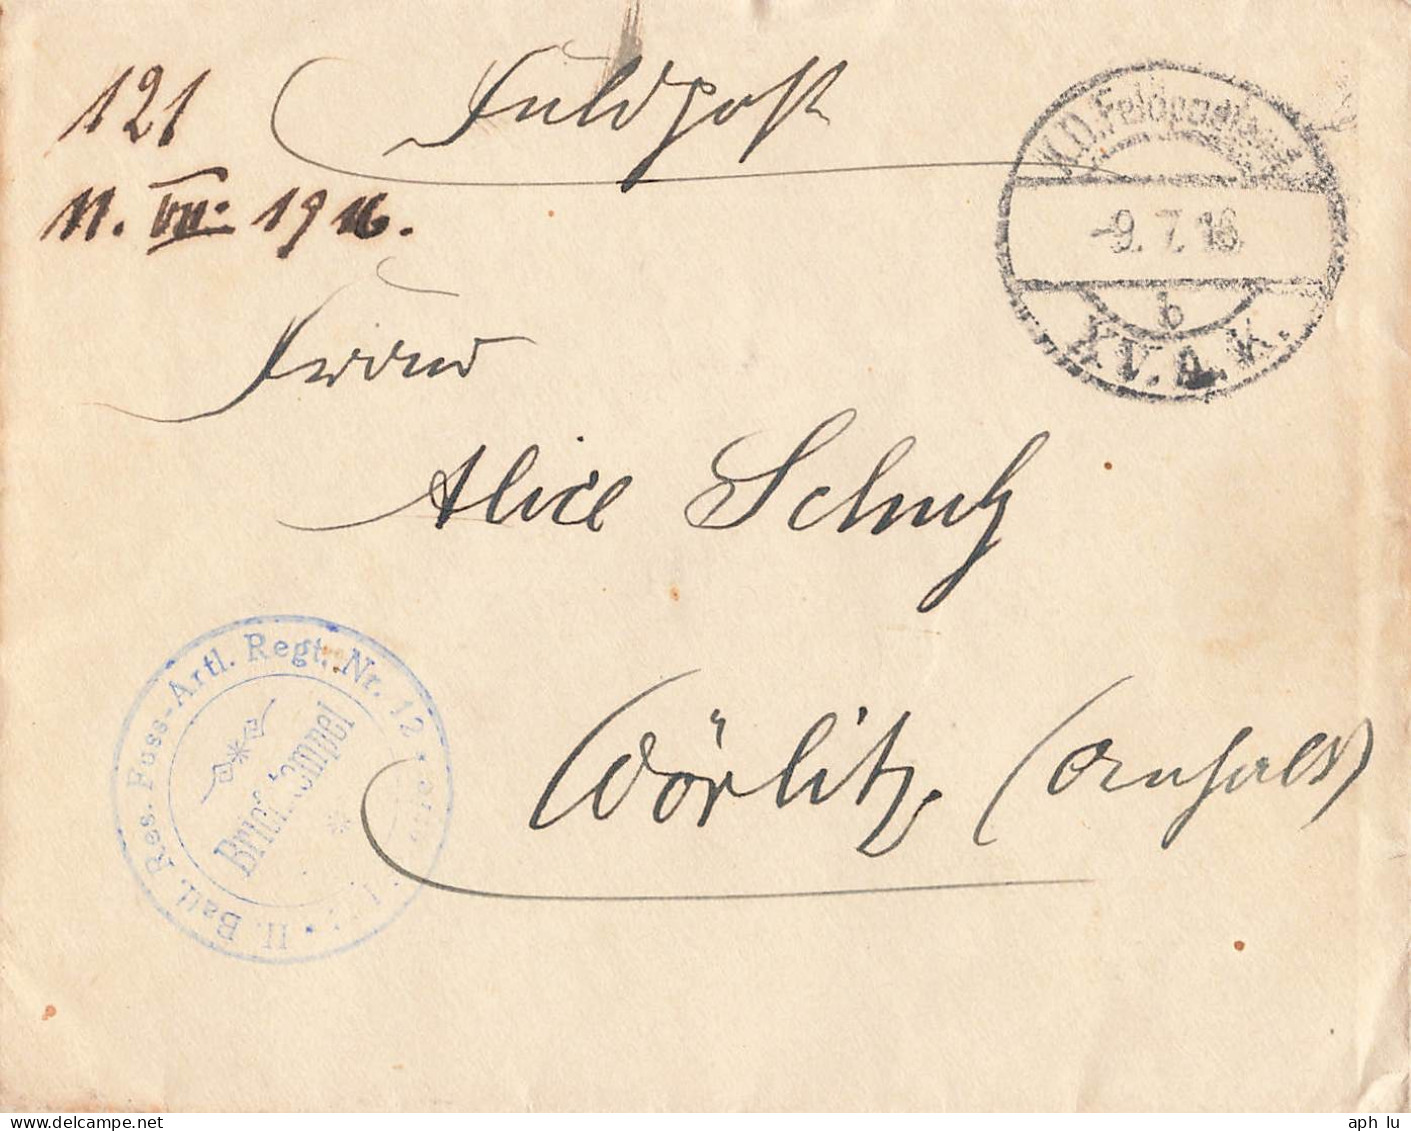 121
Feldpost
11. VII. 1916.
K.D. Feldpostamt
-9. 7. 16
b
XV. A. K.
Frau
Alice Schulz
Wörlitz, (Anhalt)
II. Batl. Res. Fuss-Artl. Regt. Nr. 12
Briefstempel
aph lu